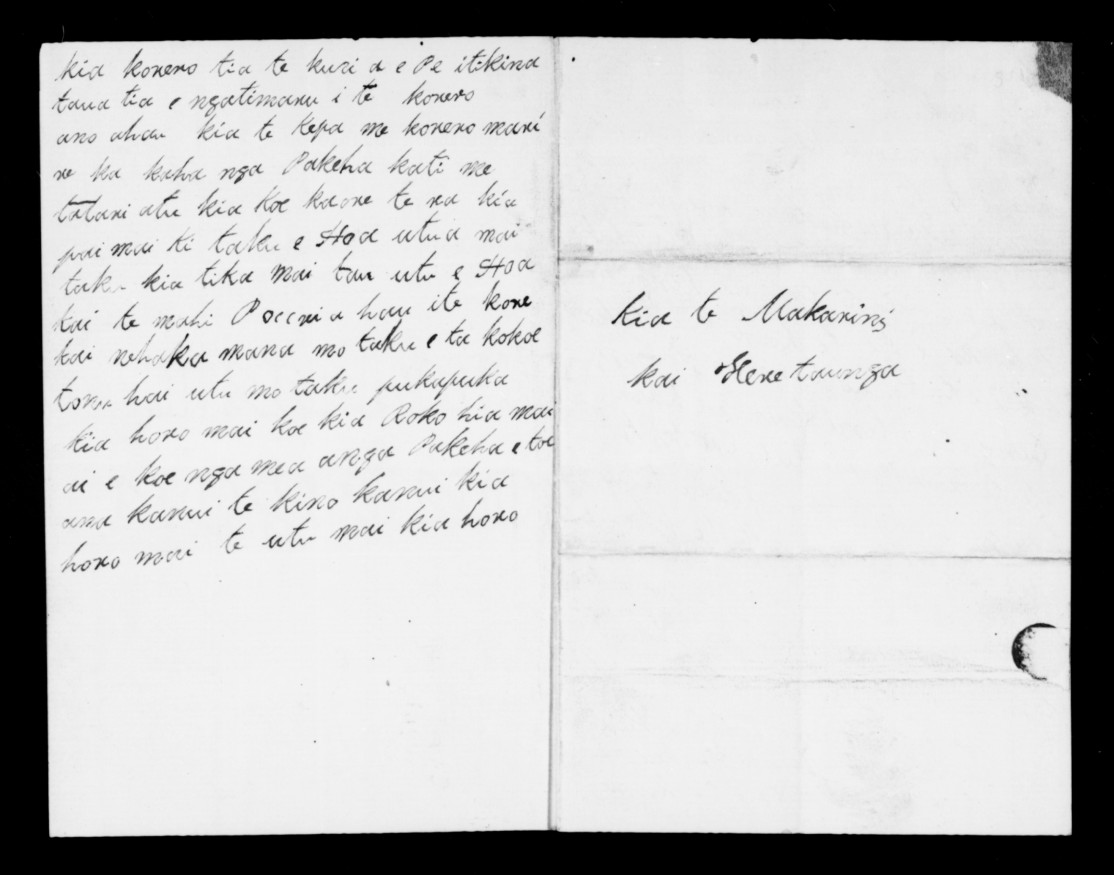 kia korero tia te kuri a e Pe itikina
taua tia e ngatimaru i te korero
ano ahau kia te Kepa me korero mari
re ka kaha nga Pakeha kati me
tatari atu kia koe kaore te ra kia
pai mai ki taku e Hoa utua mai
taku kia tika mai tau utu e Hoa
kai te mahi a hau ite kore
kai whaka mana mo taku e ta kokoe
hai utu mo taku pukapuka
kia horo mai koe kia Roko hia mai
ai e koe nga mea anga Pakeha e toe
ana kanui te kino kanui kia
horo mai te utu mai kia horo
kia te Makarini
kai Heretaunga